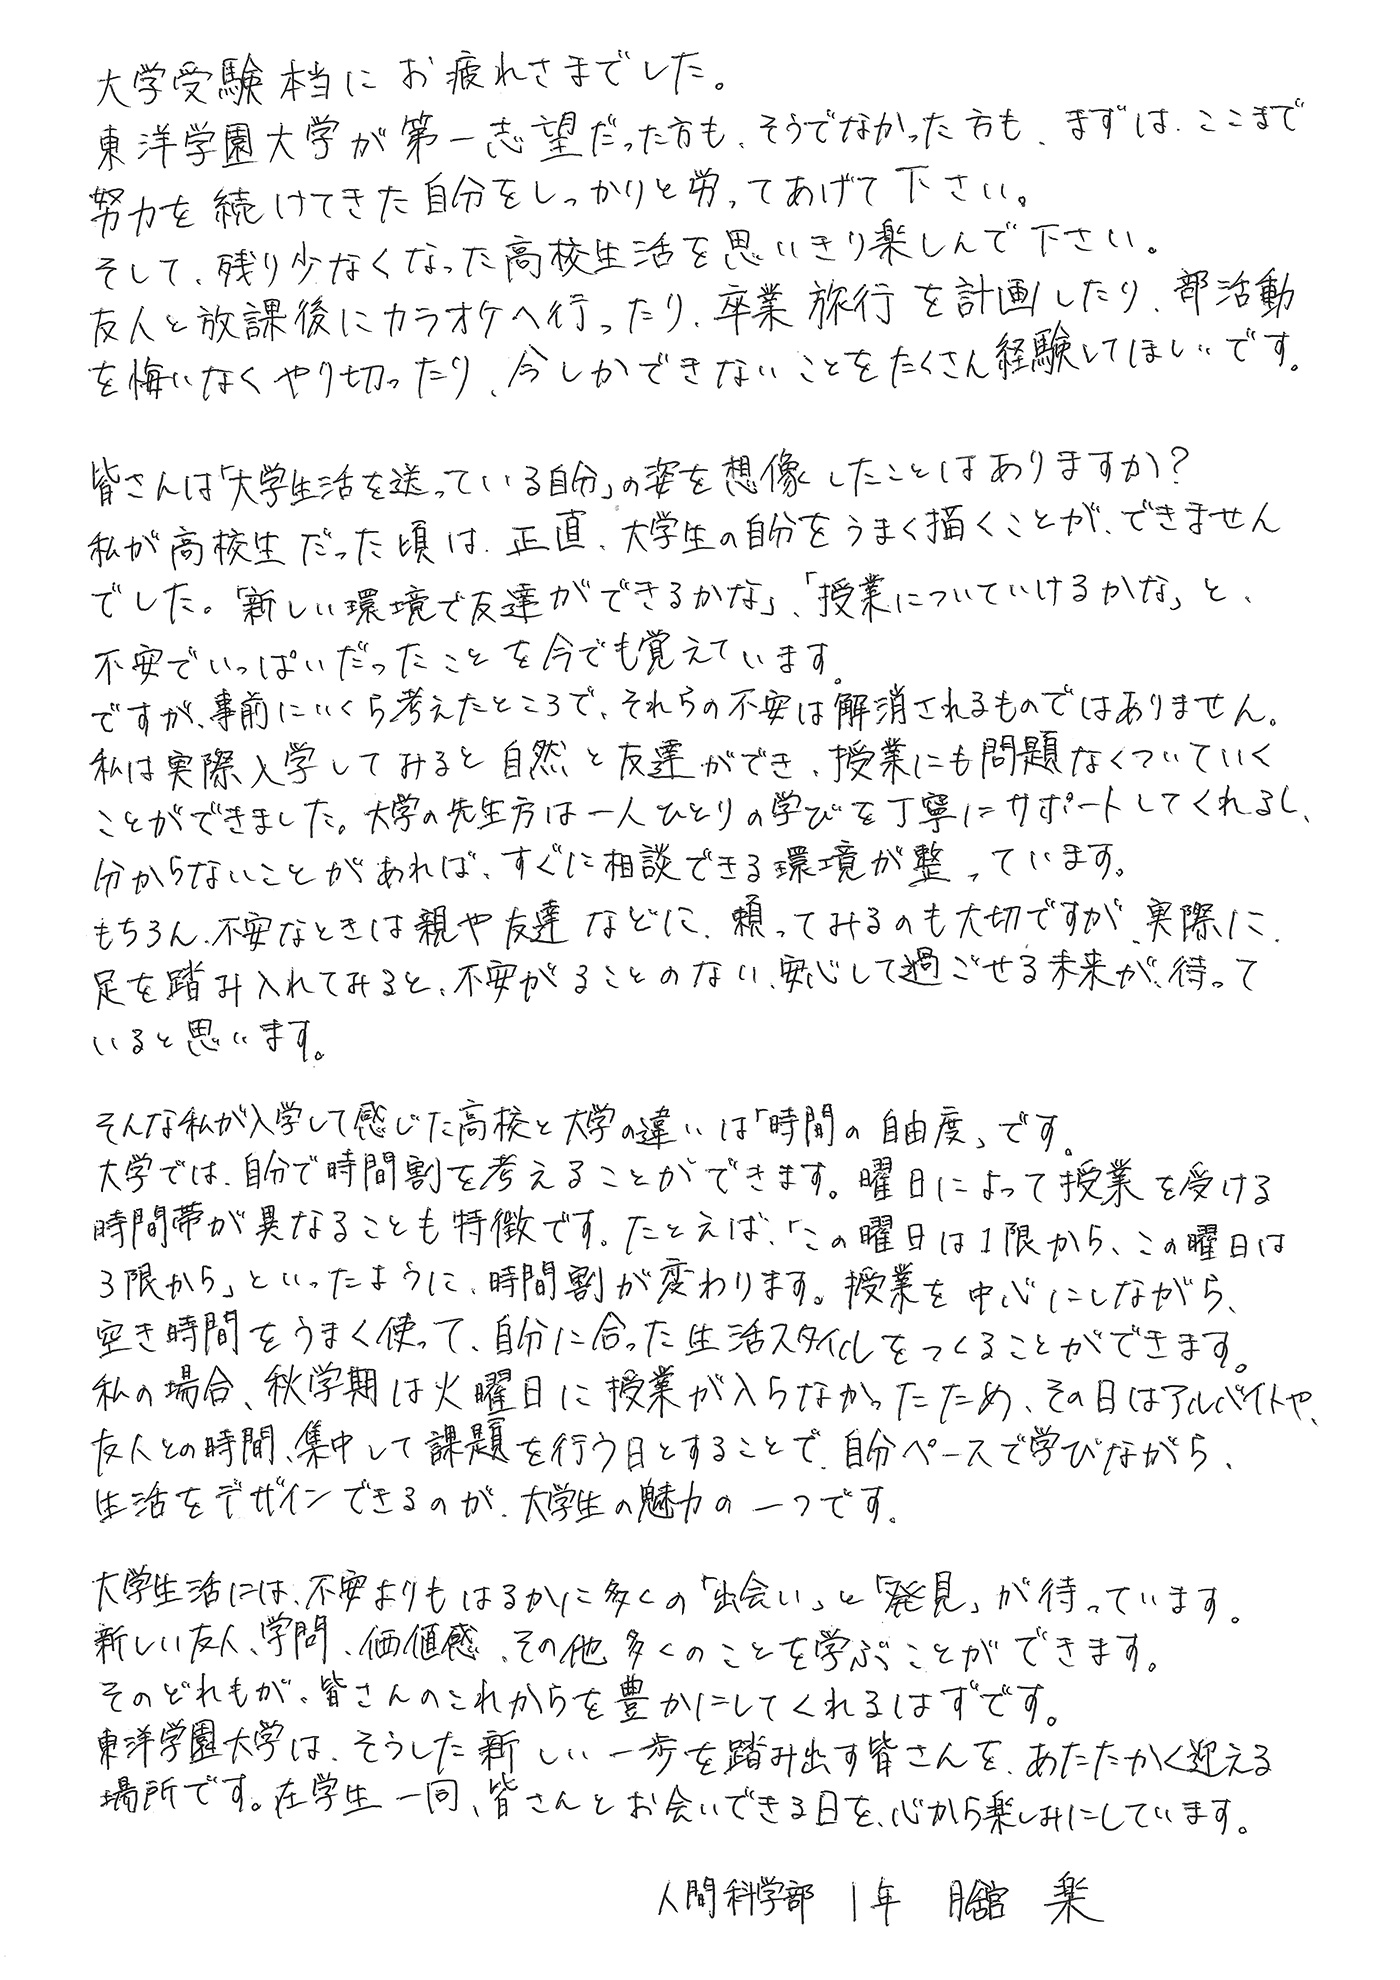 大学受験本当にお疲れさまでした。
東洋学園大学が第一志望だった方も、そうでなかった方も、まずは、ここまで
努力を続けてきた自分をしっかりと労ってあげて下さい。
そして、残り少なくなった高校生活を思いきり楽しんで下さい。
友人と放課後にカラオケへ行ったり、卒業旅行を計画したり、部活動
を悔いなくやり切ったり、今しかできないことをたくさん経験してほしいです。
皆さんは「大学生活を送っている自分」の姿を想像したことはありますか?
私が高校生だった頃は、正直、大学生の自分をうまく描くことが、できません
でした。「新しい環境で友達ができるかな」、「授業についていけるかな」と、
不安でいっぱいだったことを今でも覚えています。
ですが、事前にいくら考えたところで、それらの不安は解消されるものではありません。
私は実際入学してみると自然と友達ができ、授業にも問題なくついていく
ことができました。大学の先生方は一人ひとりの学びを丁寧にサポートしてくれるし、
分からないことがあれば、すぐに相談できる環境が整っています。
もちろん、不安なときは親や友達などに、頼ってみるのも大切ですが、実際に、
足を踏み入れてみると、不安がることのない、安心して過ごせる未来が、待って
いると思います。
そんな私が入学して感じた高校と大学の違いは「時間の自由度」です。
大学では、自分で時間割を考えることができます。曜日によって授業を受ける
時間帯が異なることも特徴です。たとえば、「この曜日は1限から、この曜日は
3限から」といったように、時間割が変わります。授業を中心にしながら、
空き時間をうまく使って、自分に合った生活スタイルをつくることができます。
私の場合、秋学期は火曜日に授業が入らなかったため、その日はアルバイトや、
友人との時間、集中して課題を行う日とすることで、自分ペースで学びながら、
生活をデザインできるのが、大学生の魅力の一つです。
大学生活には、不安よりもはるかに多くの「出会い」と「発見」が待っています。
新しい友人、学問、価値感、その他多くのことを学ぶことができます。
そのどれもが、皆さんのこれからを豊かにしてくれるはずです。
東洋学園大学は、そうした新しい一歩を踏み出す皆さんを、あたたかく迎える
場所です。在学生一同、皆さんとお会いできる日を、心から楽しみにしています。
人間科学部 1年 月舘 楽